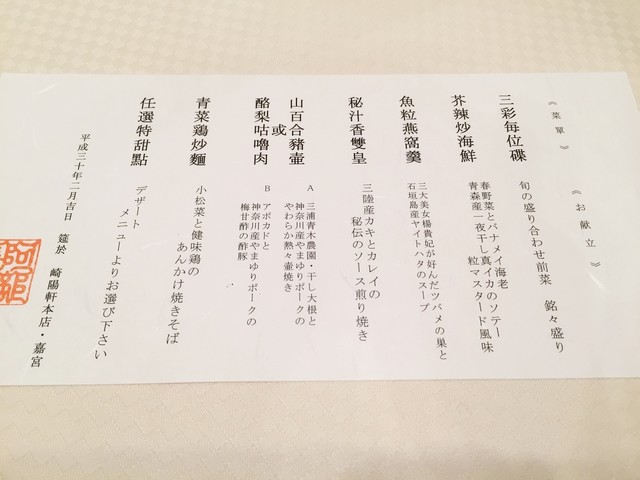 《菜單》
《お献立》
三彩毎位碟
旬の盛り合わせ前菜 銘々盛り
芥辣炒海鮮
春野菜とバナメイ海老
青森産一夜干し真イカのソテー
粒マスタード風味
魚粒燕窩羹
三大美女楊貴妃が好んだツバメの巣と
石垣島産ヤイトハタのスープ
秘汁香雙皇
三陸産カキとカレイの
秘伝のソース煎り焼き
山百合豬壷
A 三浦青木農園・干し大根と
神奈川産やまゆりポークの
やわらか熱々壷焼き
或
酪梨咕嚕肉
B アボカドと
神奈川産やまゆりポークの
梅甘酢の酢豚
青菜鶏炒麵
小松菜と健味鶏の
あんかけ焼きそば
任選特甜點
デザート
メニューよりお選び下さい
平成三十年二月吉日 筵於 崎陽軒本店・嘉宮